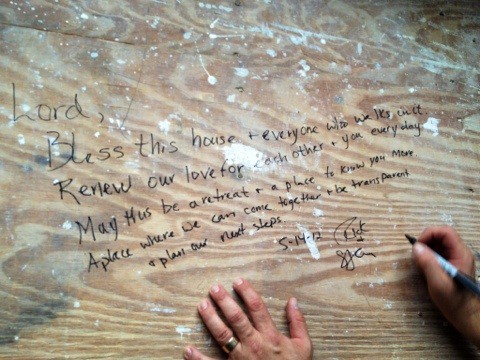 Lord,
Bless this house + everyone who walks in it.
Renew our love for each other + you every day.
May this be a retreat + a place to know you more.
A place where we can come together + be transparent
+ plan our next steps
5-14-12